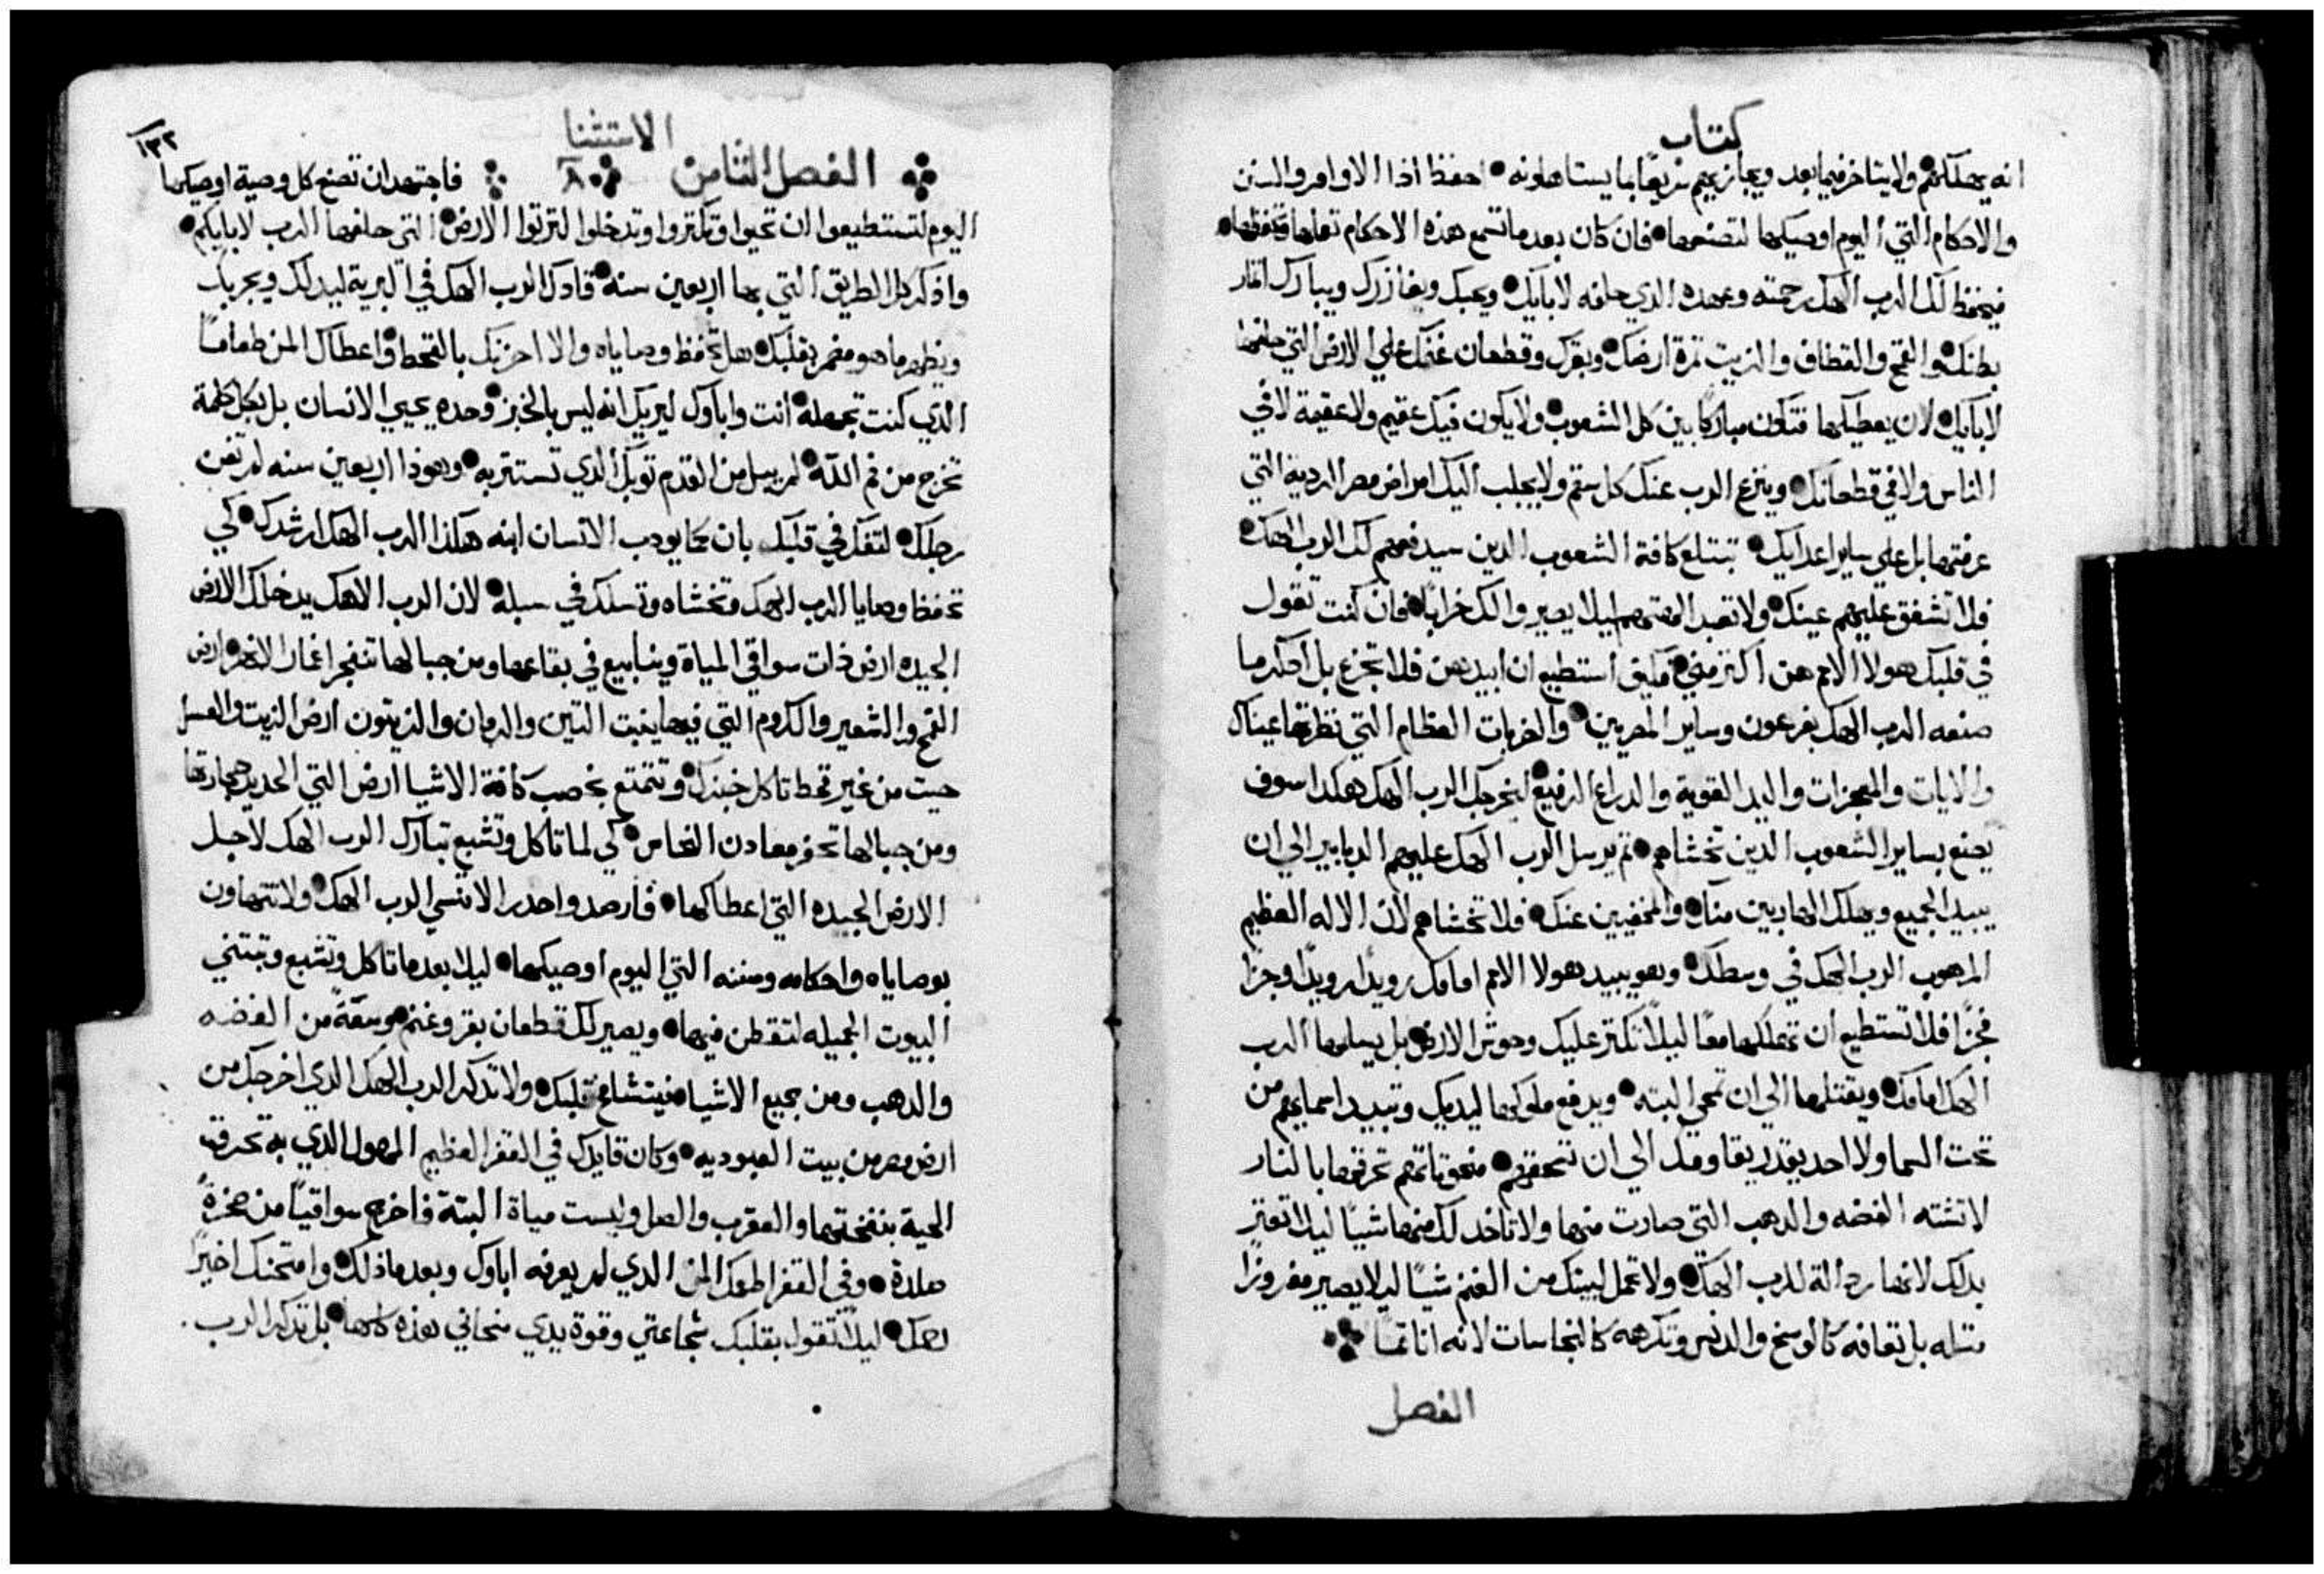 كتاب
انه يهلكهم ولا يتاخر فيما بعد ويجازيهم سريعًا بما يستاهلونه احفظ اذا الاوامر والسنن
والاحكام التي اليوم اوصيكها لتصنعها فان كان بعد ما تسمع هذه الاحكام تعلمها وتحفظها
فيحفظ لك الرب الهك رحمته وعهده الذي حلفه لابايك ويحبك ويغازرك ويبارك اتمار
بطنك والقمح والقطاف والزيت تمرة ارضك وبقرك وقطعان غنمك علي الارض التي حلفها
لابايك لان يعطيكها فتكون مباركًا بين كل الشعوب ولا يكون فيك عقيم ولا عقيمة لا في
الناس ولا في قطعانك وينزع الرب عنك كل سقم ولا يجلب اليك امراض مصر الردية التي
عرفتها بل علي ساير اعدايك تبتلع كافة الشعوب الدين سيدفعهم لك الرب الهك
فلا تشفق عليهم عينك ولا تعبد الهتهم ليلا يصيروا لك خرابًا فان كنت تقول
في قلبك هولا الامم هن اكتر مني فكيف استطيع ان ابيدهن فلا تجزع بل ادكر ما
صنعه الرب الهك بفرعون وساير المصريين والضربات العظام التي نظرتها عيناك
والايات والمعجزات واليد القوية والدراع الرفيع ليخرجك الرب الهك هكدا سوف
يصنع بساير الشعوب الدين تخشاهم تم يرسل الرب الهك عليهم الدبابير الي ان
يبيد الجميع ويهلك الهاربين منك والمخفيين عنك فلا تخشاهم لان الاله العظيم
المرهوب الرب الهك في وسطك وهو يبيد هولا الامم امامك رويدًا رويدًا وجزا
فجزًا فلا تستطيع ان تهلكها معًا ليلا تكتر عليك وحوش الارض بل يسلمها الرب
الهك امامك ويقتلها الي ان تمحي البته ويدفع ملوكها ليديك وتبيد اسمايهم من
تحت السما ولا احد يقدر يقاومك الي ان تسحقهم منحوتاتهم تحرقها بالنار
لا تشته الفضه والدهب التي صارت منها ولا تاخد لك منها شيًا ليلا تعتر
بدلك لانها ردالة للرب الهك ولا تحمل لبيتك من الصنم شيًا ليلا يصير مفروزًا
متله بل تعافه كالوسخ والدنس وتكرهه كالنجاسات لانه اناتمًا
الفصل
الاستتنا
١٣٢
الفصل التامن ٨ فاجتهد ان تصنع كل وصية اوصيكها
اليوم لتستطيعوا ان تحيوا وتكتروا وتدخلوا لترتوا الارض التي حلفها الرب لابايكم
وادكر كل الطريق التي بها اربعين سنة قادك الرب الهك في البرية ليدلك ويجربك
ويظهر ما هو مضمر بقلبك هل تحفظ وصاياه والا احزنك بالقحط واعطاك المن طعامًا
الذي كنت تجهله انت واباوك ليريك انه ليس بالخبز وحده يحيي الانسان بل بكل كلمة
تخرج من فم الله لم يبل من القدم توبك الذي تستتر به وهودا اربعين سنه لم تعن
رجلك لتفكر في قلبك بان كما يودب الانسان ابنه هكذا الرب الهك ارشدك كي
تحفظ وصايا الرب الهك وتخشاه وتسلك في سبله لان الرب الاهك يدخلك الارض
الجيده ارض ذات سواقي المياة وينابيع في بقاعها ومن جبالها تنفجر اغمار الانهر ارض
القمح والشعير والكروم التي فيها ينبت التين والرمان والزيتون ارض الزيت والعسل
حيت من غير قحط تاكل خبزك وتتمتع بخصب كافة الاشيا ارض التي الحديد حجارتها
ومن جبالها تحفر معادن النحاس كي لما تاكل وتشبع تبارك الرب الهك لاجل
الارض الجيده التي اعطاكها فارصد واحدر الا تنسي الرب الهك ولا تتهاون
بوصاياه واحكامه وسننه التي اليوم اوصيكها ليلا بعد ما تاكل وتشبع وتبتني
البيوت الجميله لتقطن فيها ويصير لك قطعان بقر وغنم وسعة من الفضه
والدهب ومن جميع الاشيا فيتشامخ قلبك ولا تدكر الرب الهك الدي اخرجك من
ارض مصر من بيت العبوديه وكان قايدك في القفر العظيم المهول الدي به تحرق
الحية بنفختها والعقرب والصل وليست مياة البتة فاخرج سواقيًا من صخرةً
صلدة وفي القفر اطعمك المن الدي لم يعرفه اباوك وبعد ما ذلك وامتحنك اخيرًا
رحمك ليلا تقول بقلبك شجاعتي وقوة يدي منحاني هذه كلها بل تدكر الرب